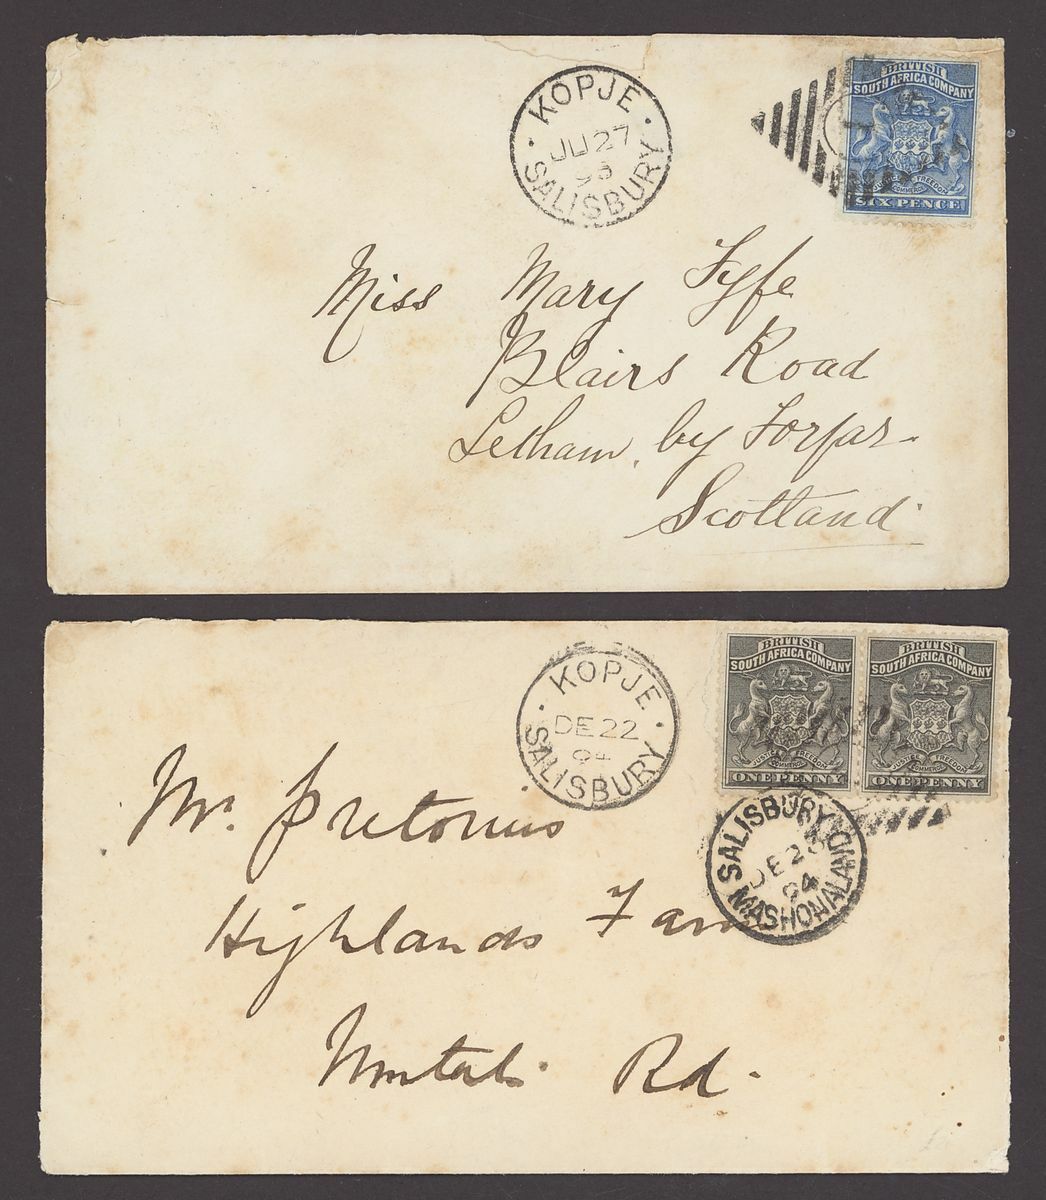 KOPJE
JU 27
93
SALISBURY
BRITISH
SOUTH AFRICA COMPANY
JUSTICE FREEDOM
COMMERCE
SIX PENCE
Miss Mary Fyfe
Blairs Road
Letham, by Forfar.
Scotland
KOPJE
DE 22
94
SALISBURY
BRITISH
SOUTH AFRICA COMPANY
JUSTICE FREEDOM
COMMERCE
ONE PENNY
BRITISH
SOUTH AFRICA COMPANY
JUSTICE FREEDOM
COMMERCE
ONE PENNY
SALISBURY
DE 23
94
MASHONALAND
Mr. Pretorius
Highlands Farm
Umtali Rd.